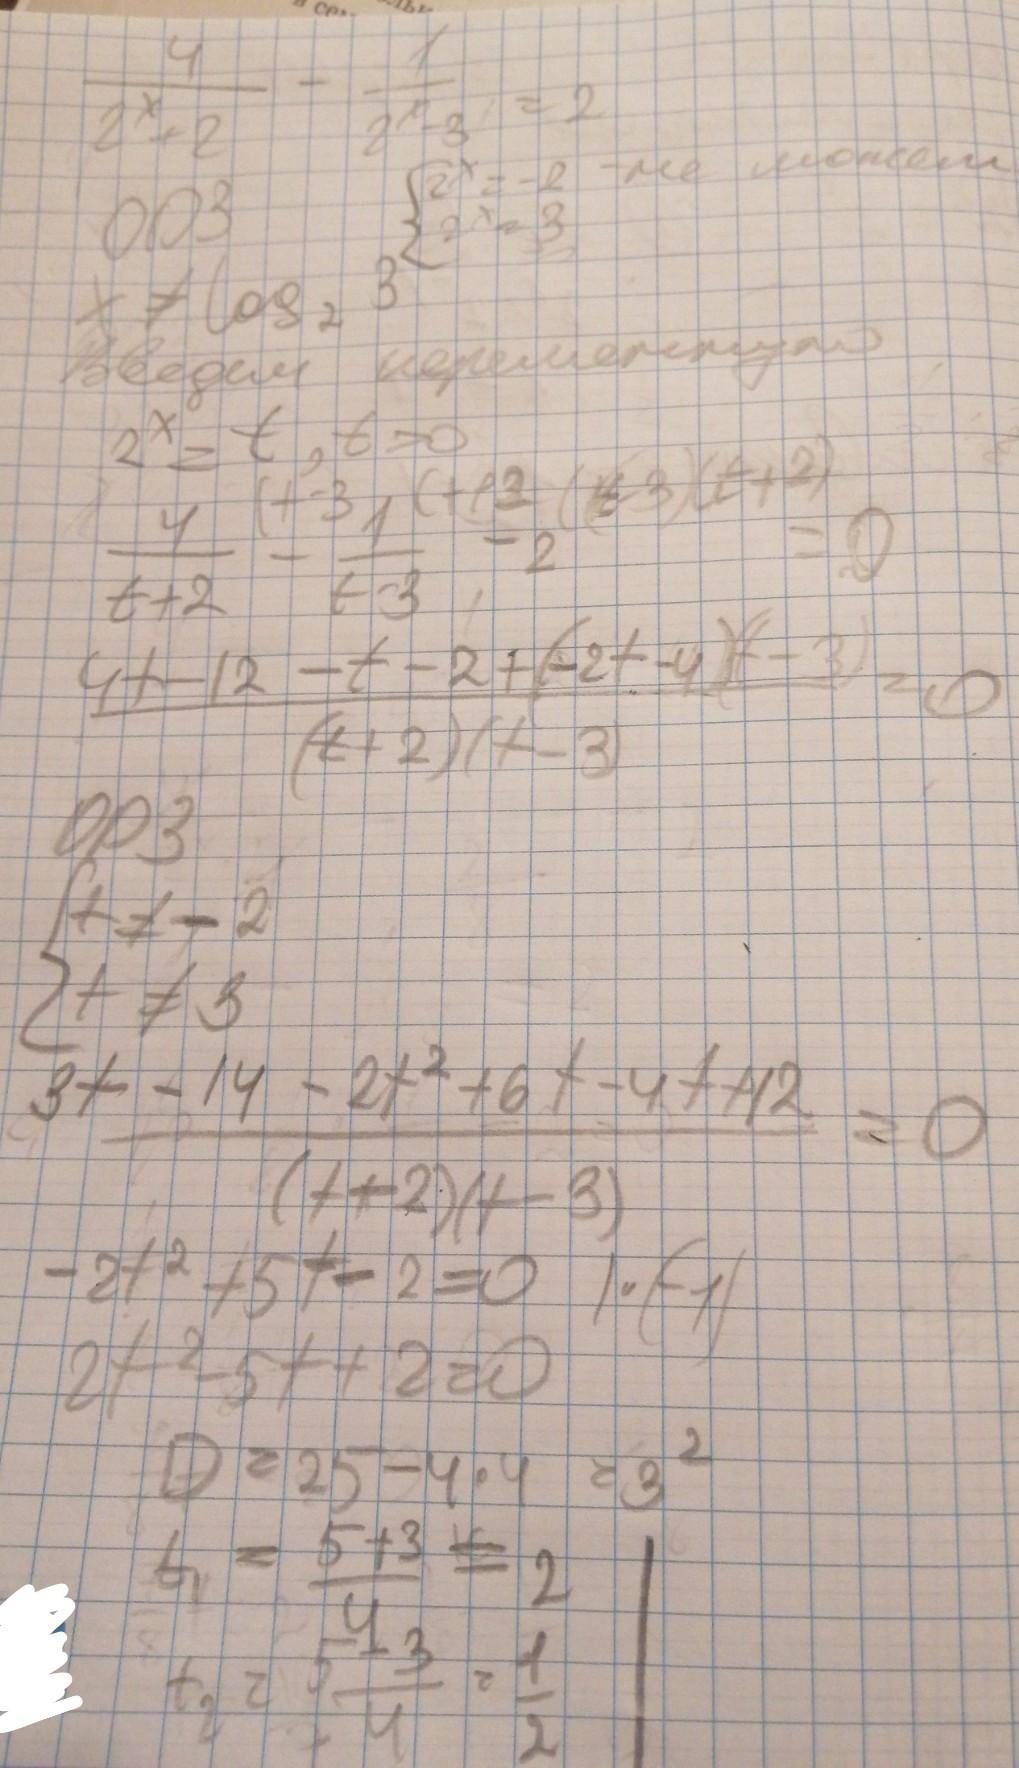 4/(2^x+2) - 1/(2^x-3) = 2
ОДЗ { 2^x = -2 - не может
2^x = 3
x ≠ log₂ 3
Введем переменную
2^x = t, t > 0
4/(t+2) (t-3 - 1/(t-3) (t+2 - 2 (t-3)(t+2) = 0
(4t-12 -t-2+(-2t-4)(t-3))/((t+2)(t-3)) = 0
ОДЗ
{ t ≠ -2
t ≠ 3
(3t-14-2t²+6t-4t+12)/((t+2)(t-3)) = 0
-2t²+5t-2=0 |·(-1)
2t²-5t+2=0
D = 25-4·4 = 3²
t₁ = (5+3)/4 = 2
t₂ = (5-3)/4 = 1/2